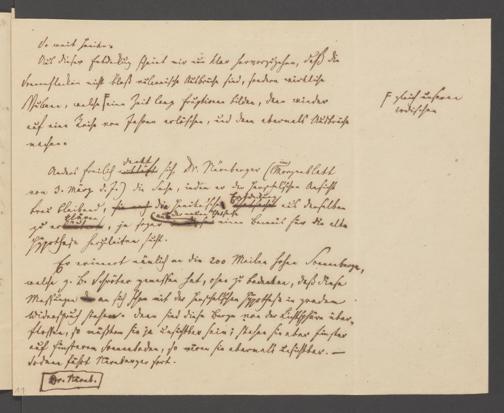 So weit heiter.
Aus dieser Entdeckung scheint mir nun klar hervorzugehen, daß die
Sonnenflecken nicht bloß vulkanische Ausbrüche sind, sondern wirkliche
Vulkane, welche eine Zeit lang bilden, dann wieder
auf eine Reihe von Jahren erlöschen, und dann abermals Ausbrüche
machen.
gleich unseren
irdischen
Anders freilich denkt sich Dr. Nürnberger (Morgenblatt
vom 3. März d. J.) die Sache, indem er der Herschelschen Ansicht
treu bleibend, die aus derselben
zu, ja sogar einen Beweis für die alte
Hypothese herleiten sucht.
Er erinnert nämlich an die 200 Meilen hohen Sonnenberge,
welche z. B. Schröter gemessen hat, ohne zu bedenken, daß diese
Messungen an sich schon mit der Herschelschen Hypothese in geradem
Widerspruch stehen. Denn sind diese Berge von der Lichtsphäre über-
flossen, so müßten sie ja unsichtbar sein; stehen sie aber finster
auf finsterem Sonnenboden, so wären sie abermals unsichtbar. —
Sodann fährt Nürnberger fort.
Dr. Nürnb.